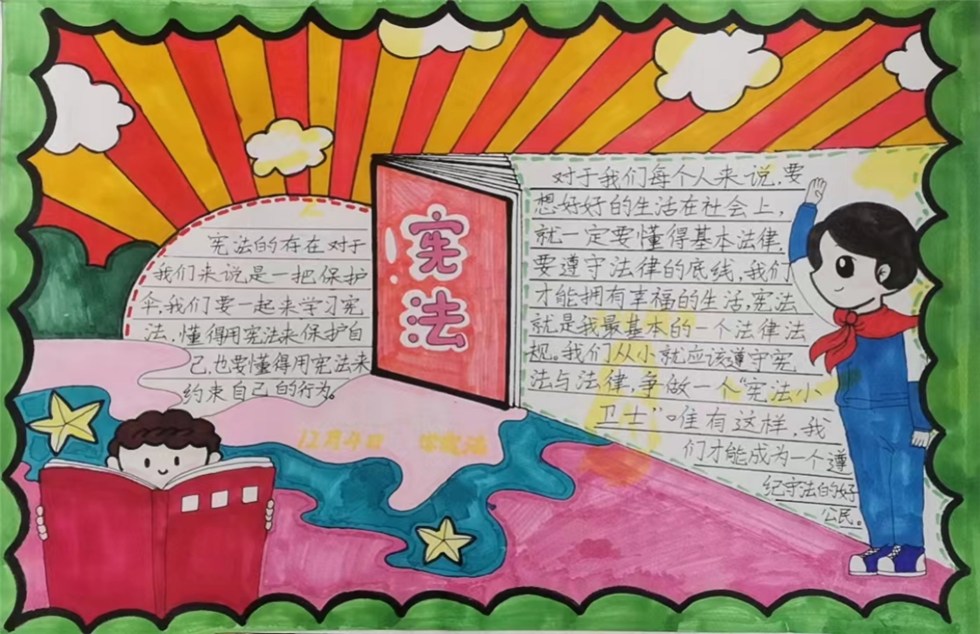 宪法的存在对于
我们来说是一把保护
伞,我们要一起来学习宪
法,懂得用宪法来保护自
己,也要懂得用宪法来
约束自己的行为。
宪法
对于我们每个人来说,要
想好好的生活在社会上,
就一定要懂得基本法律,
要遵守法律的底线,我们
才能拥有幸福的生活,宪法
就是我最基本的一个法律法
规。我们从小就应该遵守宪
法与法律,争做一个"宪法小
卫士"。唯有这样,我
们才能成为一个遵
纪守法的好
公民。
12月4日